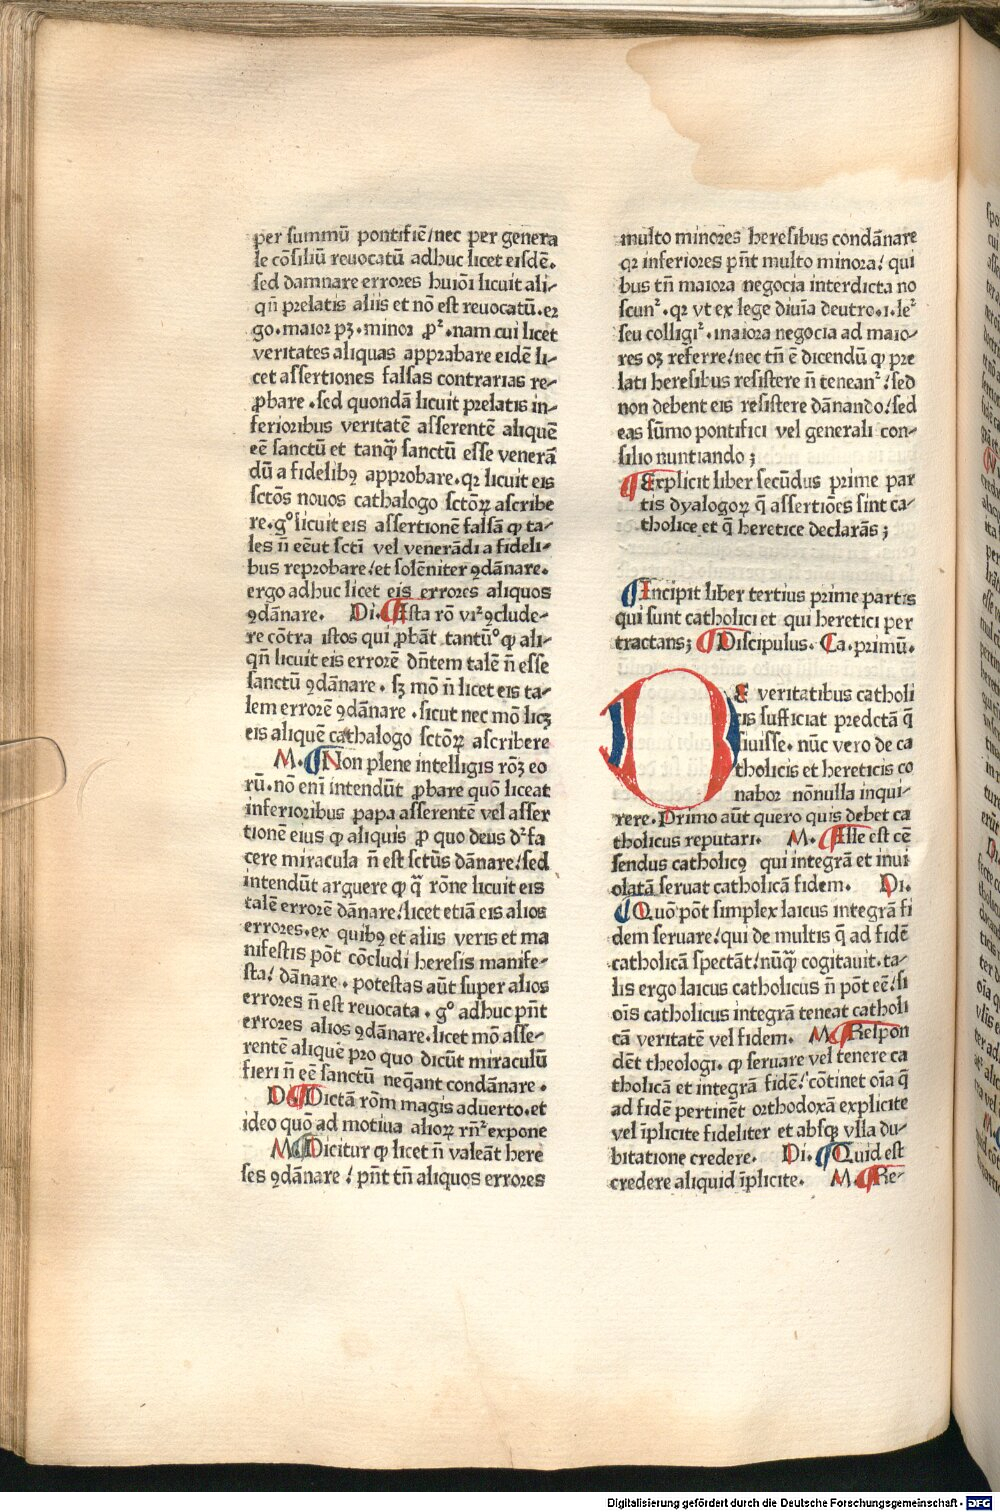 per summū pontifiē/nec per genera
le cōsiliū reuocatū adhuc licet eisdē.
sed damnare errores huiōi licuit ali-
qñ prelatis aliis et nō est reuocatū.er
go.maior pꝫ.minor ꝓᷣ.nam cui licet
veritates aliquas apprabare eidē li-
cet assertiones falsas contrarias re-
ꝓbare.sed quondā licuit prelatis in-
ferioribus veritatē asserentē aliquē
eē sanctū et tanq̄ʒ sanctū esse venerā
dū a fidelibꝯ approbare.qꝛ licuit eis
sctōs nouos cathalogo sctōꝝ ascribe
re.gͦ licuit eis assertionē falsā ꝙ ta-
les ñ eēut scti vel venerādi a fideli-
bus reprobare/et solēniter ꝯdānare.
ergo adhuc licet eis errores aliquos
ꝯdānare. Di. ¶Ista rō viꝛ ꝯclude-
re cōtra istos qui ꝓbāt tantūͦ ꝙ ali-
qñ licuit eis errorē dñtem talē ñ esse
sanctū ꝯdānare. sꝫ mō ñ licet eis ta-
lem errorē ꝯdānare .sicut nec mō licꝫ
eis aliquē cathalogo sctōꝝ ascribere
M. ¶Non plene intelligis rōꝫ eo
rū.nō enī intendūt ꝓbare quō liceat
inferioribus papa asserentē vel asser
tionē eius ꝙ aliquis ꝓ quo deus dꝛ fa
cere miracula ñ est sctūs dānare/sed
intendūt arguere ꝙ q̄ rōne licuit eis
talē errorē dānare/licet etiā eis alios
errores.ex quibꝯ et aliis veris et ma
nifestis pōt cōcludi heresis manife-
sta/ dānare. potestas aūt super alios
errores ñ est reuocata. gͦ adhuc pñt
errores alios ꝯdānare.licet mō asse-
rentē aliquē pro quo dicūt miraculū
fieri ñ eē sanctū neq̄ant condānare.
D. ¶Dictā rōm magis aduerto.et
ideo quō ad motiua alioꝝ rñꝛ expone
M. ¶Dicitur ꝙ licet ñ valeāt here
ses ꝯdānare / pñt tñ aliquos errores
multo minores heresibus condānare
qꝛ inferiores pñt multo minora/ qui
bus tñ maiora negocia interdicta no
scunꝛ. qꝛ vt ex lege diuīa deutro.1.leꝛ
seu colligiꝛ.maiora negocia ad maio-
res oꝫ referre/nec tñ ē dicendū ꝙ pre
lati heresibus resistere ñ teneanꝛ/sed
non debent eis resistere dānando/sed
eas sūmo pontifici vel generali con-
silio nuntiando;
¶Explicit liber secūdus prime par
tis dyalogoꝝ q̄ assertiōes sint ca-
tholice et q̄ heretice declarās;
¶Incipit liber tertius prime partis
qui sunt catholici et qui heretici per
tractans; ¶Discipulus. Ca.primū.
DE veritatibus catholi
cis sufficiat predctā q̄
siuisse. nūc vero de ca
tholicis et hereticis co
nabor nōnulla inqui-
rere. Primo aūt quero quis debet ca
tholicus reputari. M. ¶Ille est cē
sendus catholicꝯ qui integrā et inui
olatā seruat catholicā fidem. Di.
¶Quō pōt simplex laicus integrā fi
dem seruare/qui de multis q̄ ad fidē
catholicā spectāt/nūq̄ʒ cogitauit.ta-
lis ergo laicus catholicus ñ pōt eē/si
oīs catholicus integrā teneat catholi
cā veritatē vel fidem. M. ¶Respon
dēt theologi. ꝙ seruare vel tenere ca
tholicā et integrā fidē/ cōtinet oīa q̄
ad fidē pertinēt orthodoxā explicite
vel īplicite fideliter et absqꝫ vlla du-
bitatione credere. Di. ¶Quid est
credere aliquid īplicite. M. ¶Re-
Digitalisierung gefördert durch die Deutsche Forschungsgemeinschaft - DFG